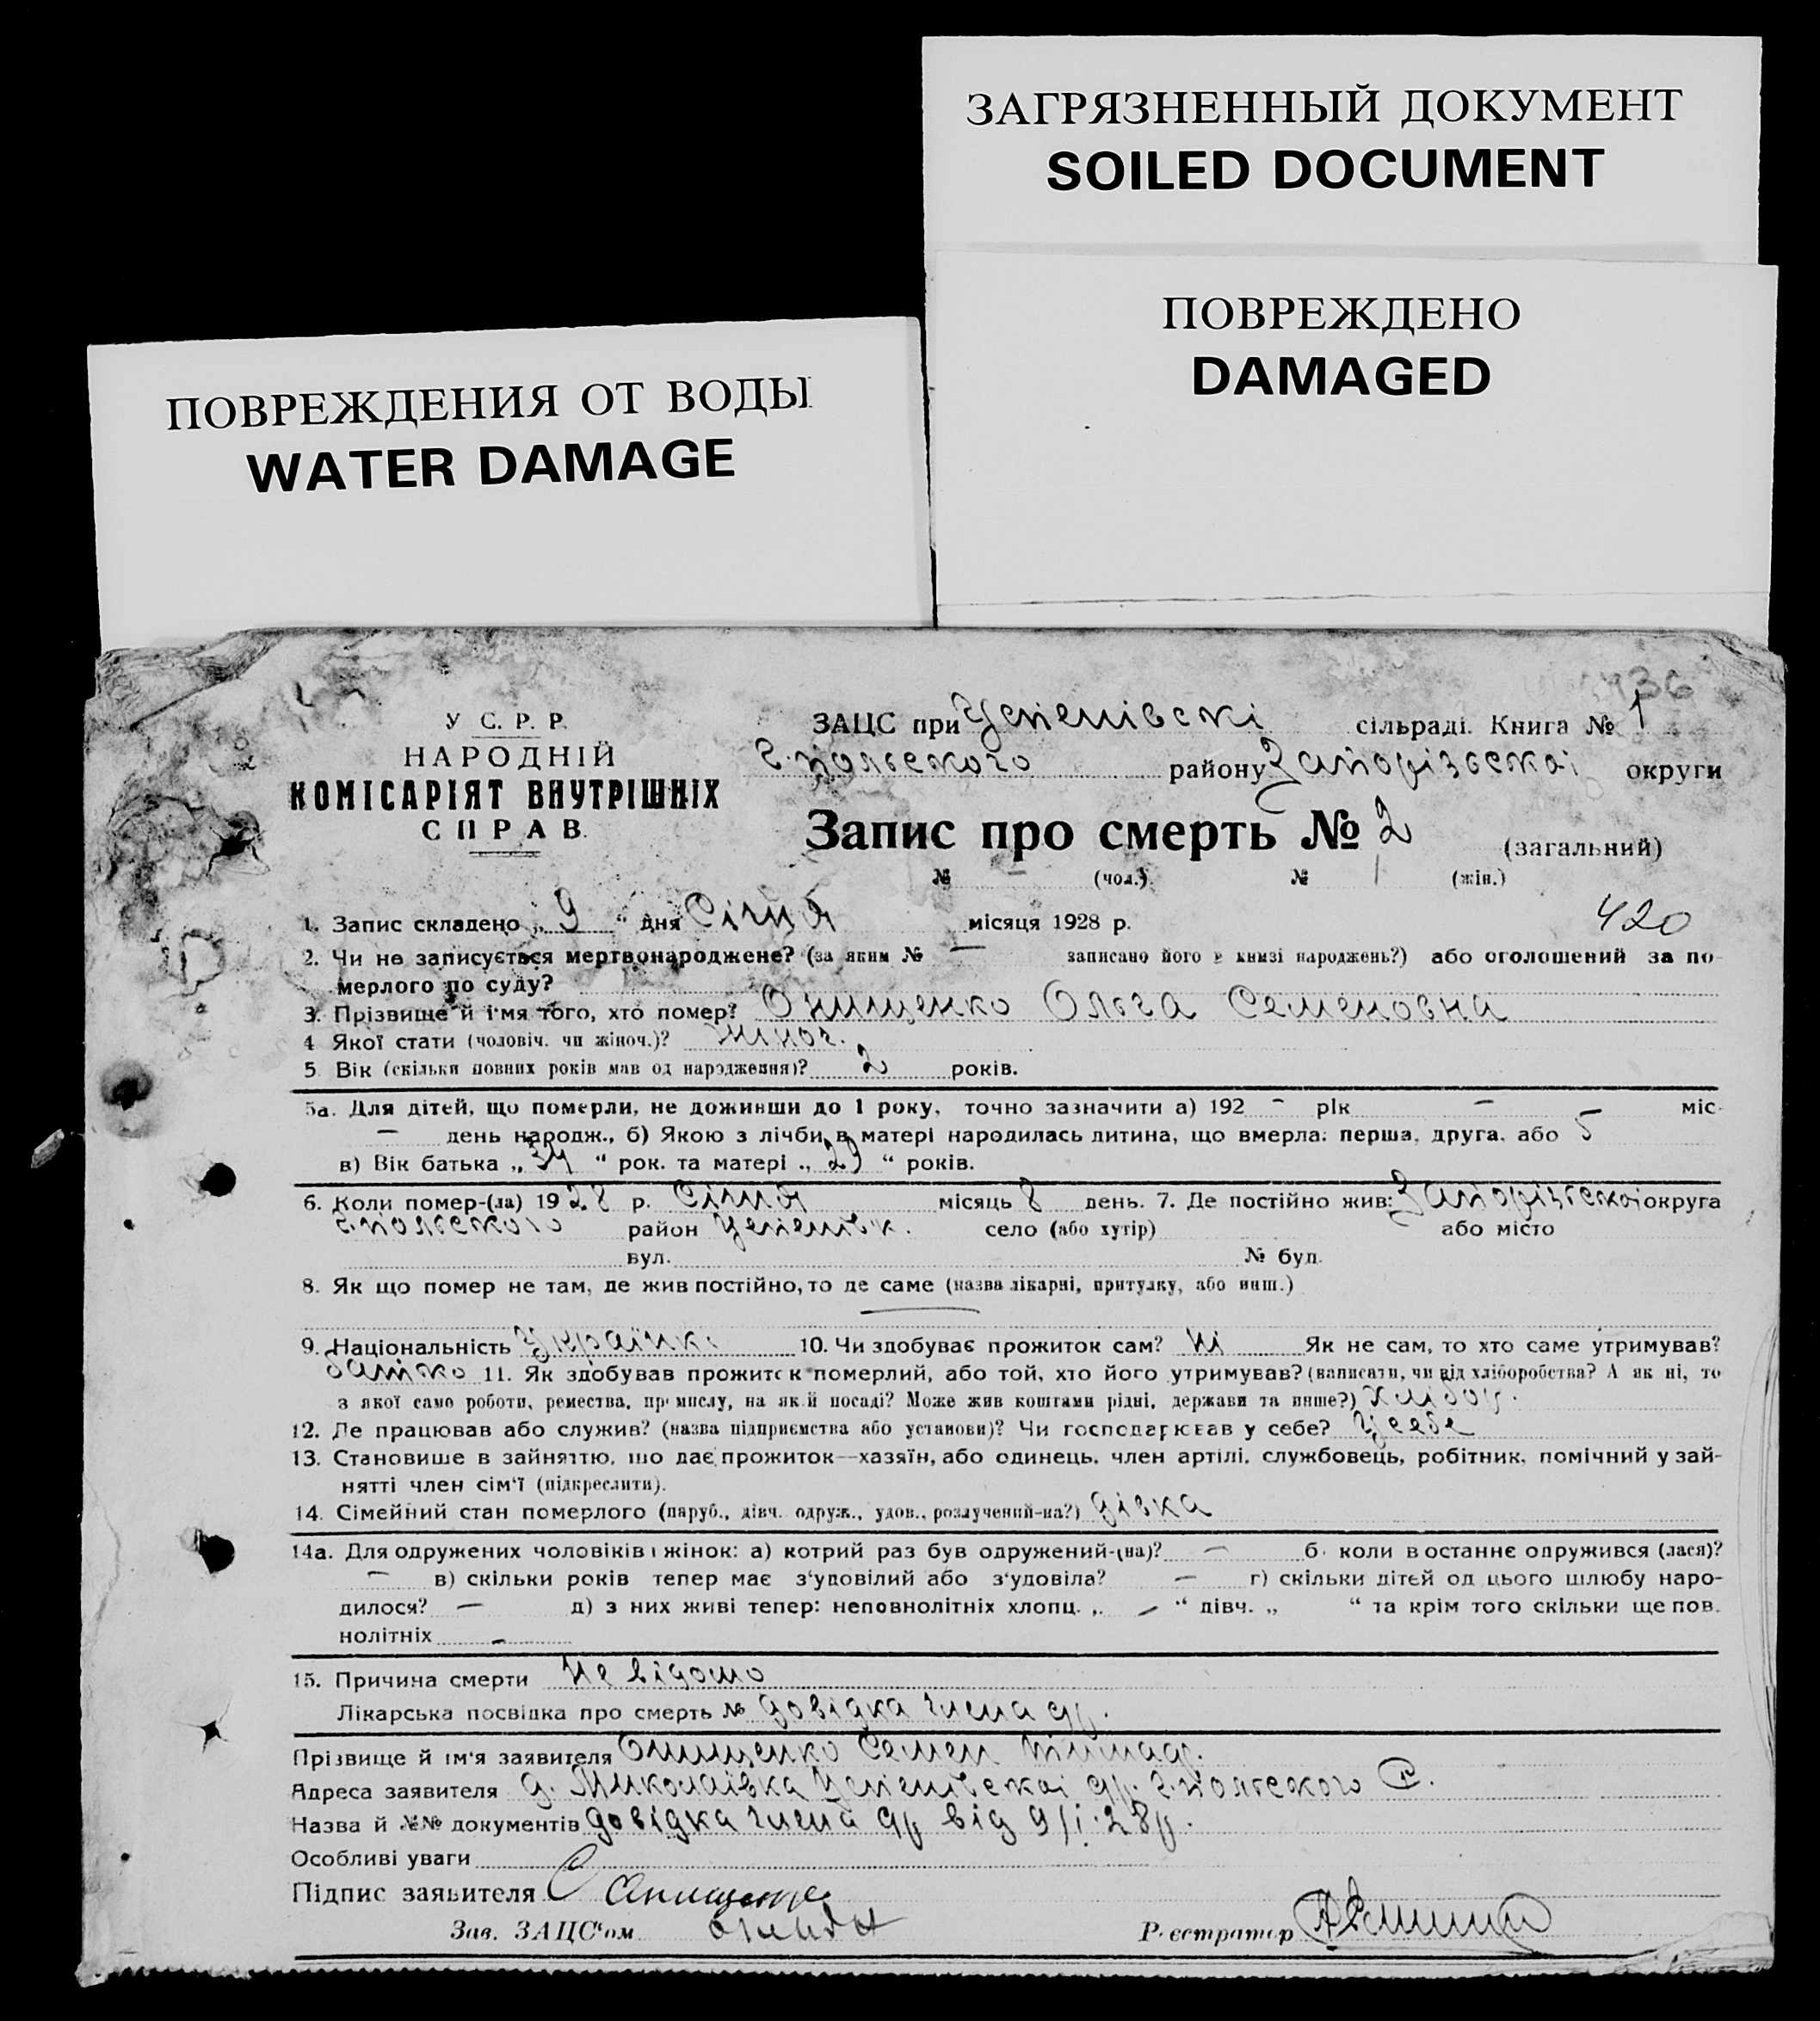 ЗАГРЯЗНЕННЫЙ ДОКУМЕНТ
SOILED DOCUMENT
ПОВРЕЖДЕНО
DAMAGED
ПОВРЕЖДЕНИЯ ОТ ВОДЫ
WATER DAMAGE
36
У С. Р. Р.
НАРОДНІЙ
КОМІСАРІЯТ ВНУТРІШНІХ
СПРАВ.
ЗАЦС при Успенівскі сільраді. Книга № 1
Г.польского району Запорізької округи
Запис про смерть № 2 (загальний)
№ — (чол.) № 1 (жін.)
1. Запис складено „ 9 “ дня Січня місяця 1928 р. 420
2. Чи не записується мертвонароджене? (за яким № — записано його в книзі народжень?) або оголошений за по-
мерлого по суду?
3. Прізвище й ім'я того, хто помер? Онищенко Ольга Семеновна
4 Якої стати (чоловіч. чи жіноч.)? жіноч.
5. Вік (скільки повних років мав од народження)? 2 років.
5а. Для дітей, що померли, не доживши до 1 року, точно зазначити а) 192 - рік — міс.
— день народж., б) Якою з лічби в матері народилась дитина, що вмерла: перша, друга, або 5
в) Вік батька „ 34 “ рок. та матері „ 29 “ років.
6. Коли помер-(ла) 1928 р. Січня місяць 8 день. 7. Де постійно жив: Запорізської округа
Г.польского район Успенівк. село (або хутір) або місто
вул. № буд.
8. Як що помер не там, де жив постійно, то де саме (назва лікарні, притулку, або инш.)
—
9. Національність Українк. 10. Чи здобуває прожиток сам? Ні Як не сам, то хто саме утримував?
батько 11. Як здобував прожиток померлий, або той, хто його утримував? (написати, чи від хліборобства? А як ні, то
з якої само роботи, ремества, промислу, на якій посаді? Може жив коштами рідні, держави та инше?) хлібор.
12. Де працював або служив? (назва підприємства або установи)? Чи господарював у себе? Усебе
13. Становише в зайняттю, що дає прожиток—хазяїн, або одинець, член артілі, службовець, робітник, помічний у зай-
нятті член сім'ї (підкреслити).
14. Сімейний стан померлого (паруб., дівч. одруж., удов., розлучений-на?) дівка
14а. Для одружених чоловіків і жінок: а) котрий раз був одружений-(на)? — б. коли в останнє одружився (лася)?
— в) скільки років тепер має з'удовілий або з'удовіла? — г) скільки дітей од цього шлюбу наро-
дилося? — д) з них живі тепер: неповнолітніх хлопц. „ — “ дівч. „ “ та крім того скільки ще пов.
нолітніх -
15. Причина смерти Не відомо
Лікарська посвідка про смерть № довідка члена с/р.
Прізвище й ім'я заявителя Онищенко Семен
Адреса заявителя д. Миколаївка Успенівської с/р. Г.польского Р.
Назва й №№ документів довідка члена с/р від 9/І·28р.
Особливі уваги
Підпис заявителя С Онищенко
Зав. ЗАЦС'ом
Реєстратор